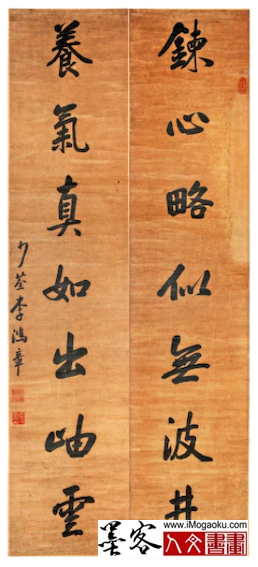 鍊心略似無波井
養氣真如出岫雲
少荃李鴻章
墨客
www.iMogaoku.com
人文書畫